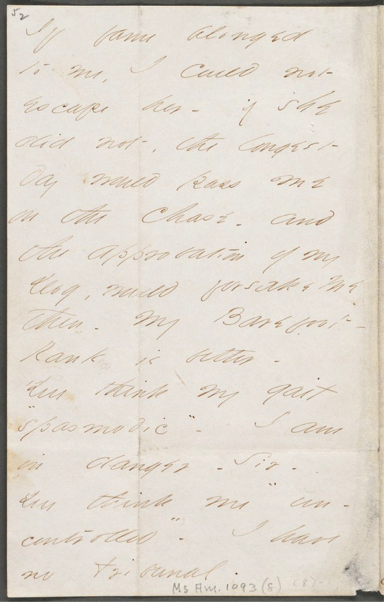 52
If fame belonged
to me, I could not
escape her - if she
did not, the longest
day would pass me
on the chase - and
the approbation of my
Dog, would forsake me
then - My Barefoot-
Rank is better -
You think my gait
"spasmodic" - I am
in danger - Sir -
You think me "un-
controlled" - I have
no Tribunal.
Ms Am. 1093 (8)